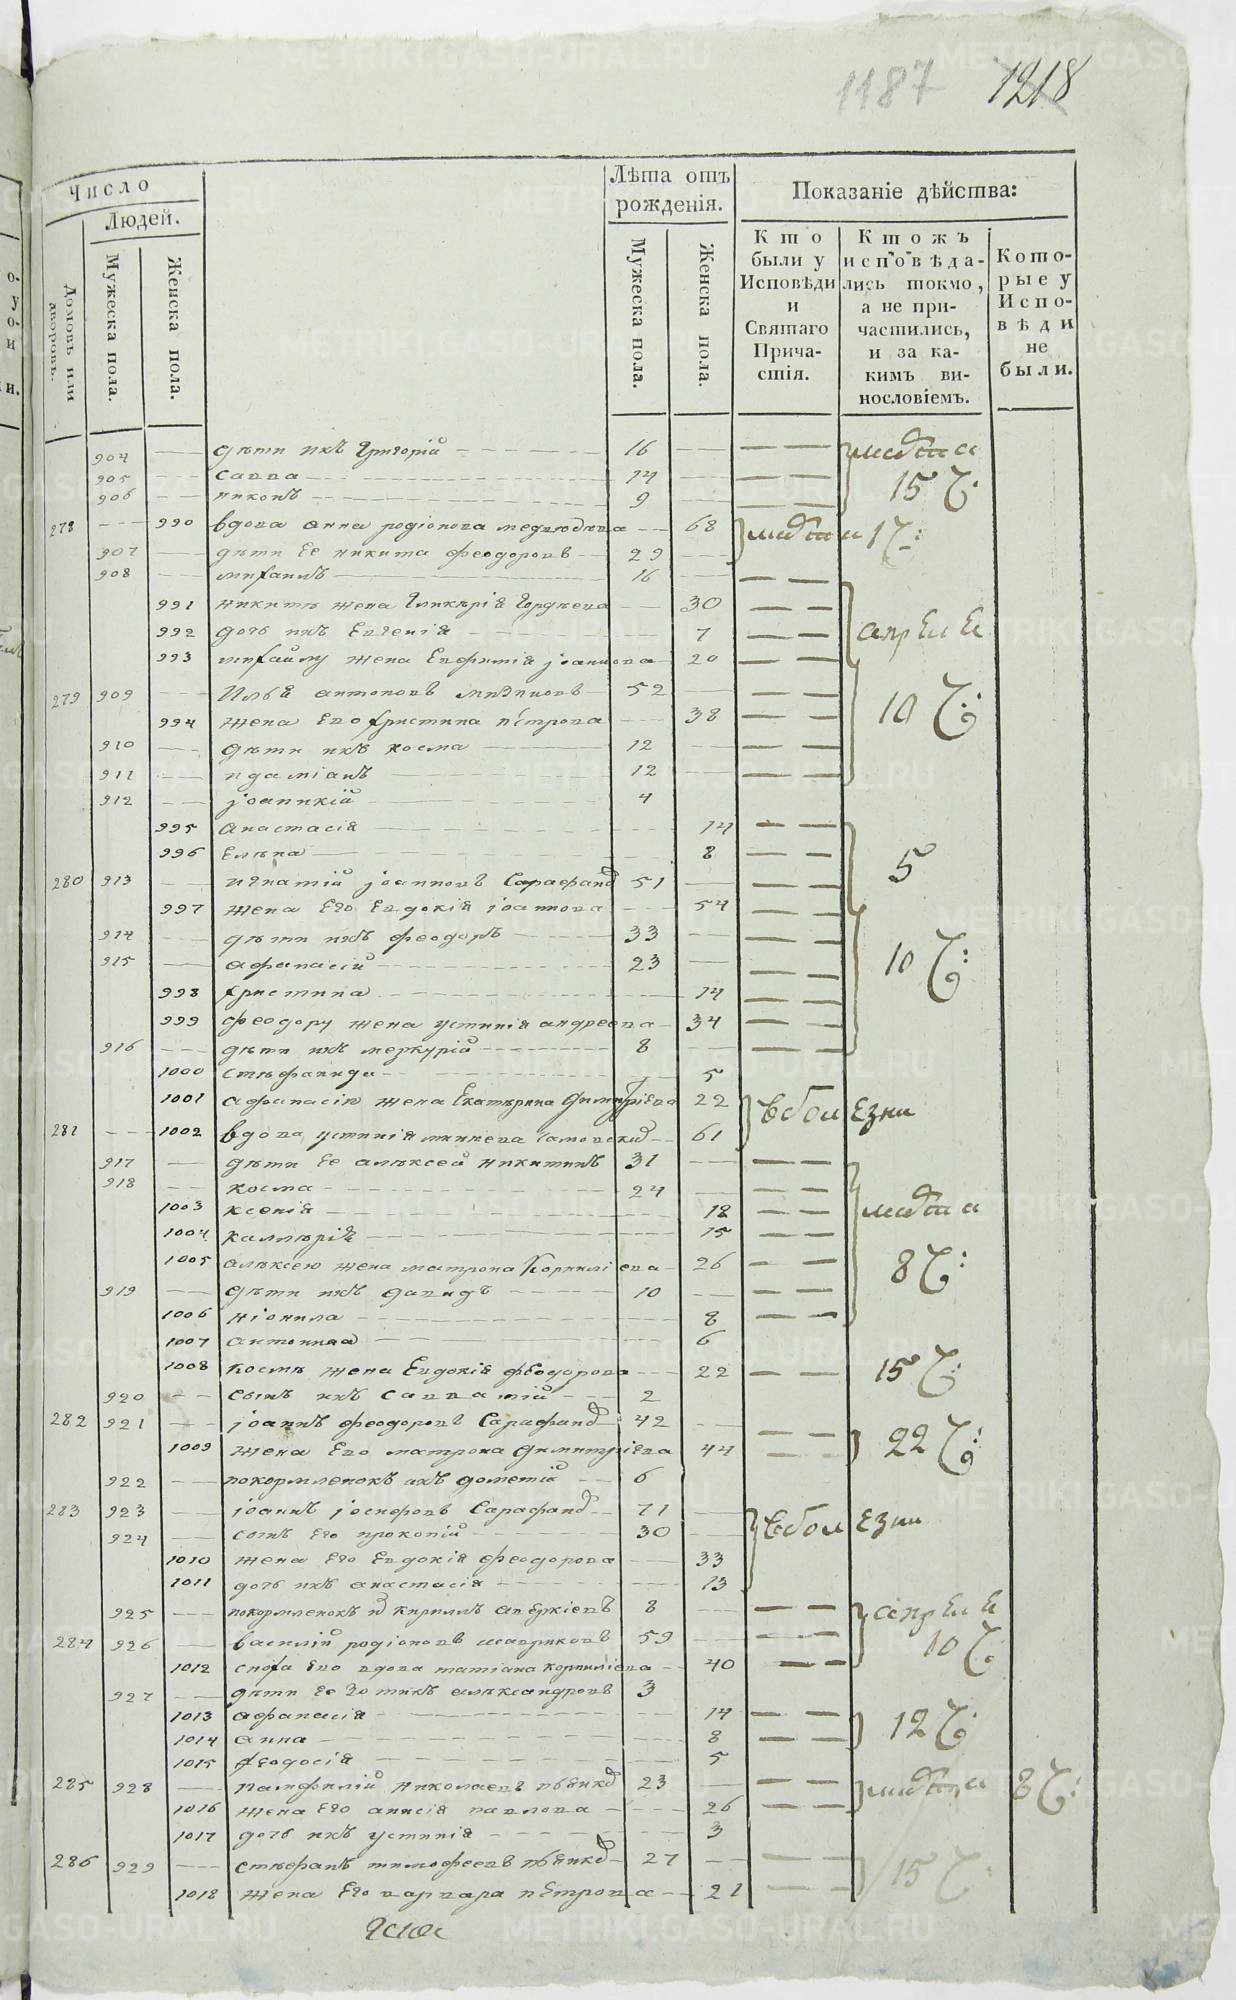 1187 1218
Число
Людей.
Домовъ или дворовъ.
Мужеска пола.
Женска пола.
Лѣта отъ рожденія.
Мужеска пола.
Женска пола.
Показаніе дѣйства:
Кто были у Исповѣди и Святаго Причастія.
Ктожъ исповѣдались токмо, а не причастились, и за какимъ винословіемъ.
Которые у Исповѣди не были.
904 дѣти ихъ Григорій 16 марта
905 савва 14 15 ч:
906 никонъ 9
278 990 вдова анна родіонова 68 марта 17 ч:
907 дѣти ее никита феодоровъ 29
908 михаилъ 16
991 никитѣ жена Гликѣрія Гордѣева 30
992 дочь ихъ Евгенія 7 апрѣля
993 михайлу жена Евфимія іоаннова 20
279 909 Илья антоновъ 52
994 жена Его христина пѣтрова 38 10 ч:
910 дѣти ихъ косма 12
911 и даміанъ 12
912 іоанникій 4
995 анастасія 14
996 Елѣна 8 5
280 913 игнатій іоанновъ Сарафанъ 51
997 жена Его Евдокія іоаннова 54
914 дѣти ихъ феодоръ 33
915 афанасій 23 10 ч:
998 христина 14
999 феодору жена устинія андреева 34
916 дѣти ихъ меркурій 8
1000 стѣфанида 5
1001 афанасію жена Екатѣрина Димитріева 22 в болезни
281 1002 вдова устинія 61
917 дѣти ее алѣксей никитинъ 31
918 косма 24
1003 ксенія 18 марта
1004 15
1005 алѣксею жена матрона Корниліева 26 8 ч:
919 дѣти ихъ давидъ 10
1006 ніонила 8
1007 антонина 6
1008 космѣ жена Евдокія феодорова 22 15 ч:
920 сынъ ихъ савватій 2
282 921 іоаннъ феодоровъ Сарафанъ 42
1009 жена Его матрона Димитріева 44 22 ч:
922 покормленокъ ихъ дометій 6
283 923 іоаннъ іосифовъ Сарафанъ 71 в болезни
924 сынъ Его прокопій 30
1010 жена Его Евдокія феодорова 33
1011 дочь ихъ анастасія 13
925 покормленокъ их кириллъ авѣркіевъ 8 апрѣля
284 926 василій родіоновъ 59 10 ч:
1012 сноха Его вдова татіана корниліева 40
927 дѣти ее Зотикъ алѣксандровъ 3
1013 афанасія 14 12 ч:
1014 анна 8
1015 феодосія 5
285 928 памфилій николаевъ 23 марта 8 ч:
1016 жена Его анисія павлова 26
1017 дочь ихъ устинія 3
286 929 стѣфанъ тимофеевъ 27 15 ч:
1018 жена Его варвара пѣтрова 21